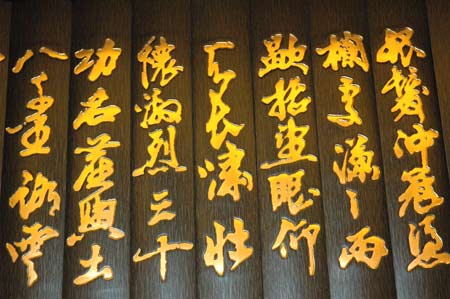 怒髮冲冠憑
欄處瀟瀟雨
歇抬望眼仰
天長嘯壯
懷激烈三十
功名塵與土
八千里路雲